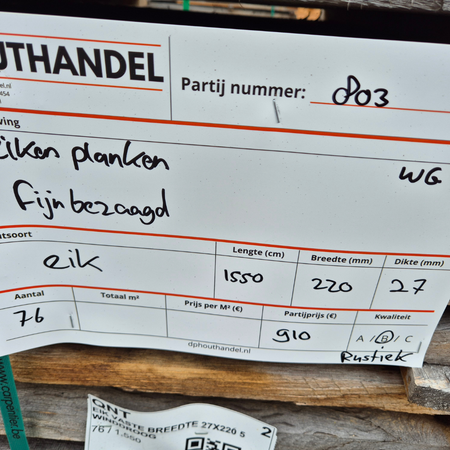 UTHANDEL
Partij nummer: 803
Eiken planken WG
fijnbezaagd
Lengte (cm) Breedte (mm) Dikte (mm)
eik 1550 220 27
Aantal Totaal m² Prijs per M² (€) Partijprijs (€) Kwaliteit
76 910 A / B / C
Rustiek
dphouthandel.nl
www.carpentier.be
QNT
EIK VASTE BREEDTE 27X220 5
WINDDROOG
76 / 1.550
2